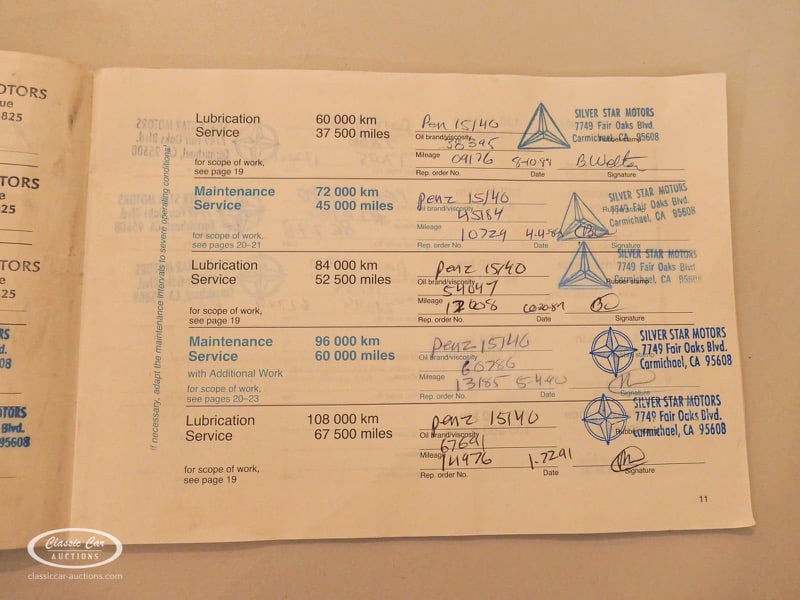 OTORS
ue
825
OTORS
e
25
OTORS
e
25
RS
d.
08
TORS
Blvd.
95608
If necessary, adapt the maintenance intervals to severe operating conditions!
Lubrication 60 000 km
Service 37 500 miles
for scope of work,
see page 19
Pen 15/40
Oil brand/viscosity
38395
Mileage
09176
Rep. order No. Date Signature
B. Welter
SILVER STAR MOTORS
7749 Fair Oaks Blvd.
Carmichael, CA 95608
Maintenance 72 000 km
Service 45 000 miles
for scope of work,
see pages 20–21
penz 15/40
Oil brand/viscosity
45184
Mileage
10729
Rep. order No. Date Signature
SILVER STAR MOTORS
7749 Fair Oaks Blvd.
Carmichael, CA 95608
Lubrication 84 000 km
Service 52 500 miles
for scope of work,
see page 19
penz 15/40
Oil brand/viscosity
54047
Mileage
12008
Rep. order No. Date Signature
SILVER STAR MOTORS
7749 Fair Oaks Blvd.
Carmichael, CA 95608
Maintenance 96 000 km
Service 60 000 miles
with Additional Work
for scope of work,
see pages 20–23
penz 15/40
Oil brand/viscosity
60786
Mileage
13185 5-4-90
Rep. order No. Date Signature
SILVER STAR MOTORS
7749 Fair Oaks Blvd.
Carmichael, CA 95608
Lubrication 108 000 km
Service 67 500 miles
for scope of work,
see page 19
penz 15/40
Oil brand/viscosity
67691
Mileage
14976 1-7291
Rep. order No. Date Signature
SILVER STAR MOTORS
7749 Fair Oaks Blvd.
Rubber stamp
Carmichael, CA 95608
11
Classic Car
AUCTIONS
classiccar-auctions.com